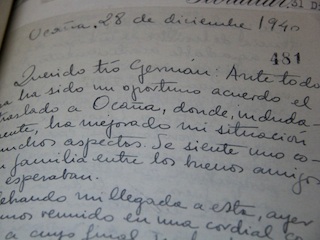 31 Di
Ocaña, 28 de diciembre 1940
481
Querido tío Germán: Ante todo
ha sido un oportuno acuerdo el
traslado a Ocaña, donde, induda-
mente, ha mejorado mi situación
muchos aspectos. Se siente uno co-
familia entre los buenos amigos
esperaban.
mi llegada a esta, ayer
reunido en una cordial co
a cuyo final